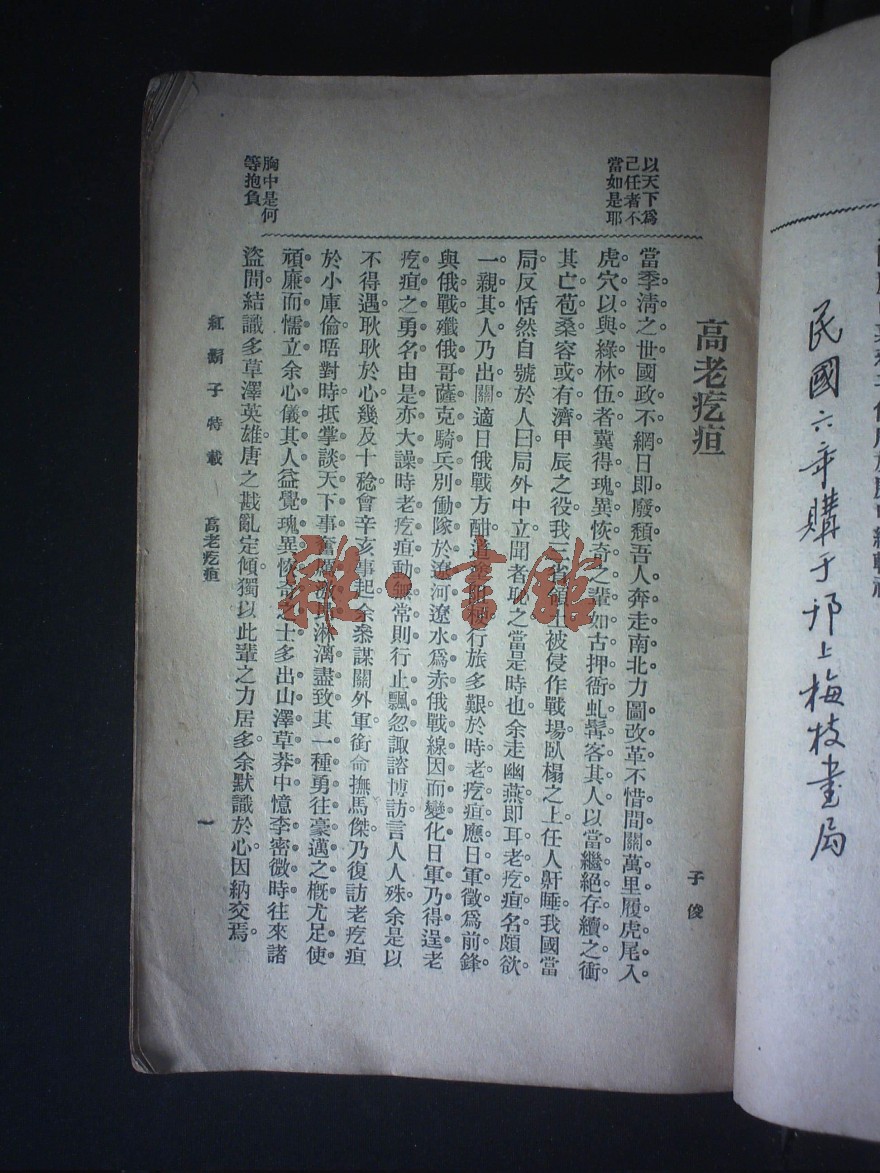 民國六年購于邗上梅枝書局
高老疙疸
子俊
以天下爲
己任者不
當如是耶
當季清之世國政不網日即廢頹吾人奔走南北力圖改革不惜間關萬里履虎尾入
虎穴以與綠林伍者冀得瑰異恢奇之輩如古押衙虬髯客其人以當繼絕存續之衝
其亡苞桑容或有濟甲辰之役我三省領土被侵作戰場臥榻之上任人鼾睡我國當
局反恬然自號於人曰局外中立聞者恥之當是時也余走幽燕即耳老疙疸名頗欲
一親其人乃出關適日俄戰方酣道塗阻梗行旅多艱於時老疙疸應日軍徵爲前鋒
與俄戰殲俄哥薩克騎兵別働隊於遼河遼水爲赤俄戰線因而變化日軍乃得逞老
疙疸之勇名由是亦大譟時老疙疸動無常則行止飄忽諏諮博訪言人人殊余是以
不得遇耿耿於心幾及十稔會辛亥事起余叅謀關外軍銜命撫馬傑乃復訪老疙疸
於小庫倫晤對時抵掌談天下事奮厲激昂淋漓盡致其一種勇往豪邁之概尤足使
頑廉而懦立余心儀其人益覺瑰異恢奇之士多出山澤草莽中憶李密微時往來諸
胸中是何
等抱負
盜間結識多草澤英雄唐之戡亂定傾獨以此輩之力居多余默識於心因納交焉
紅鬍子特載 高老疙疸 一
雜·書館